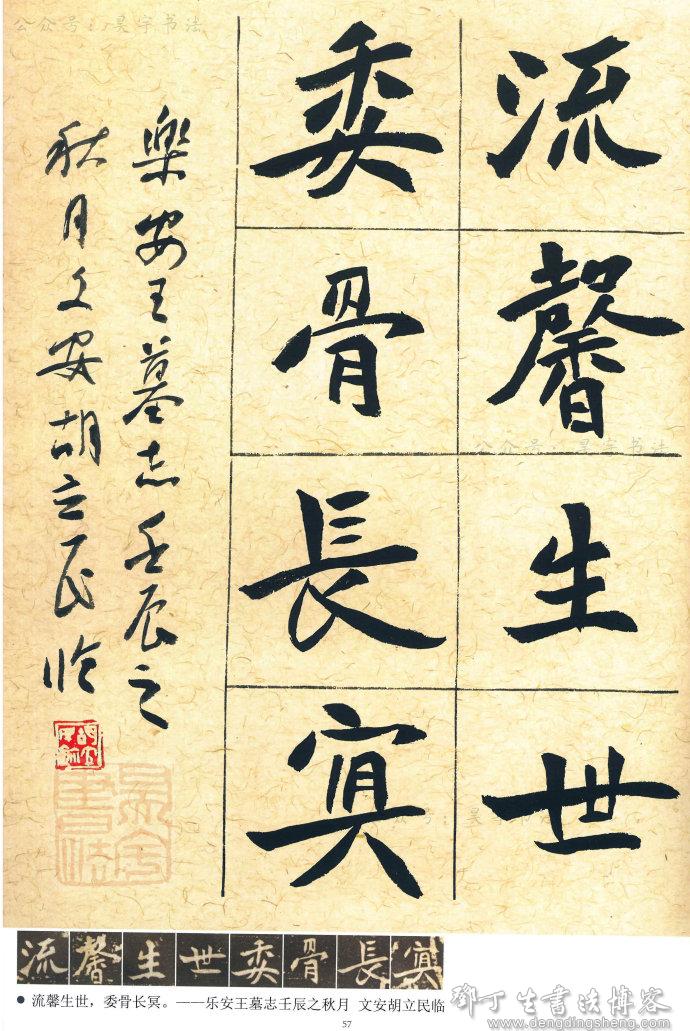 公众号：昊宇书法
流馨生世
委骨長冥
樂安王墓志壬辰之
秋月文安胡立民临
公众号：昊宇书法
昊宇书法
流馨生世委骨長冥
流馨生世，委骨长冥。——乐安王墓志壬辰之秋月 文安胡立民临
57
邓丁生书法博客
dengdingsheng.com